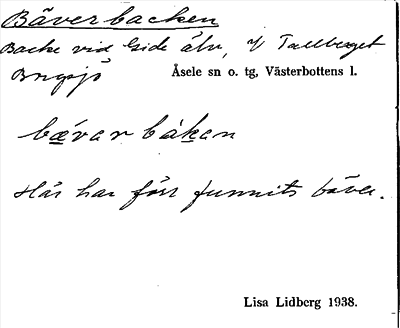 Bäverbacken
Backe vid Gide älv, V Tallberget
Borgsjö Åsele sn o. tg, Västerbottens l.
bævarbákan
Här har förr funnits bäver.
Lisa Lidberg 1938.